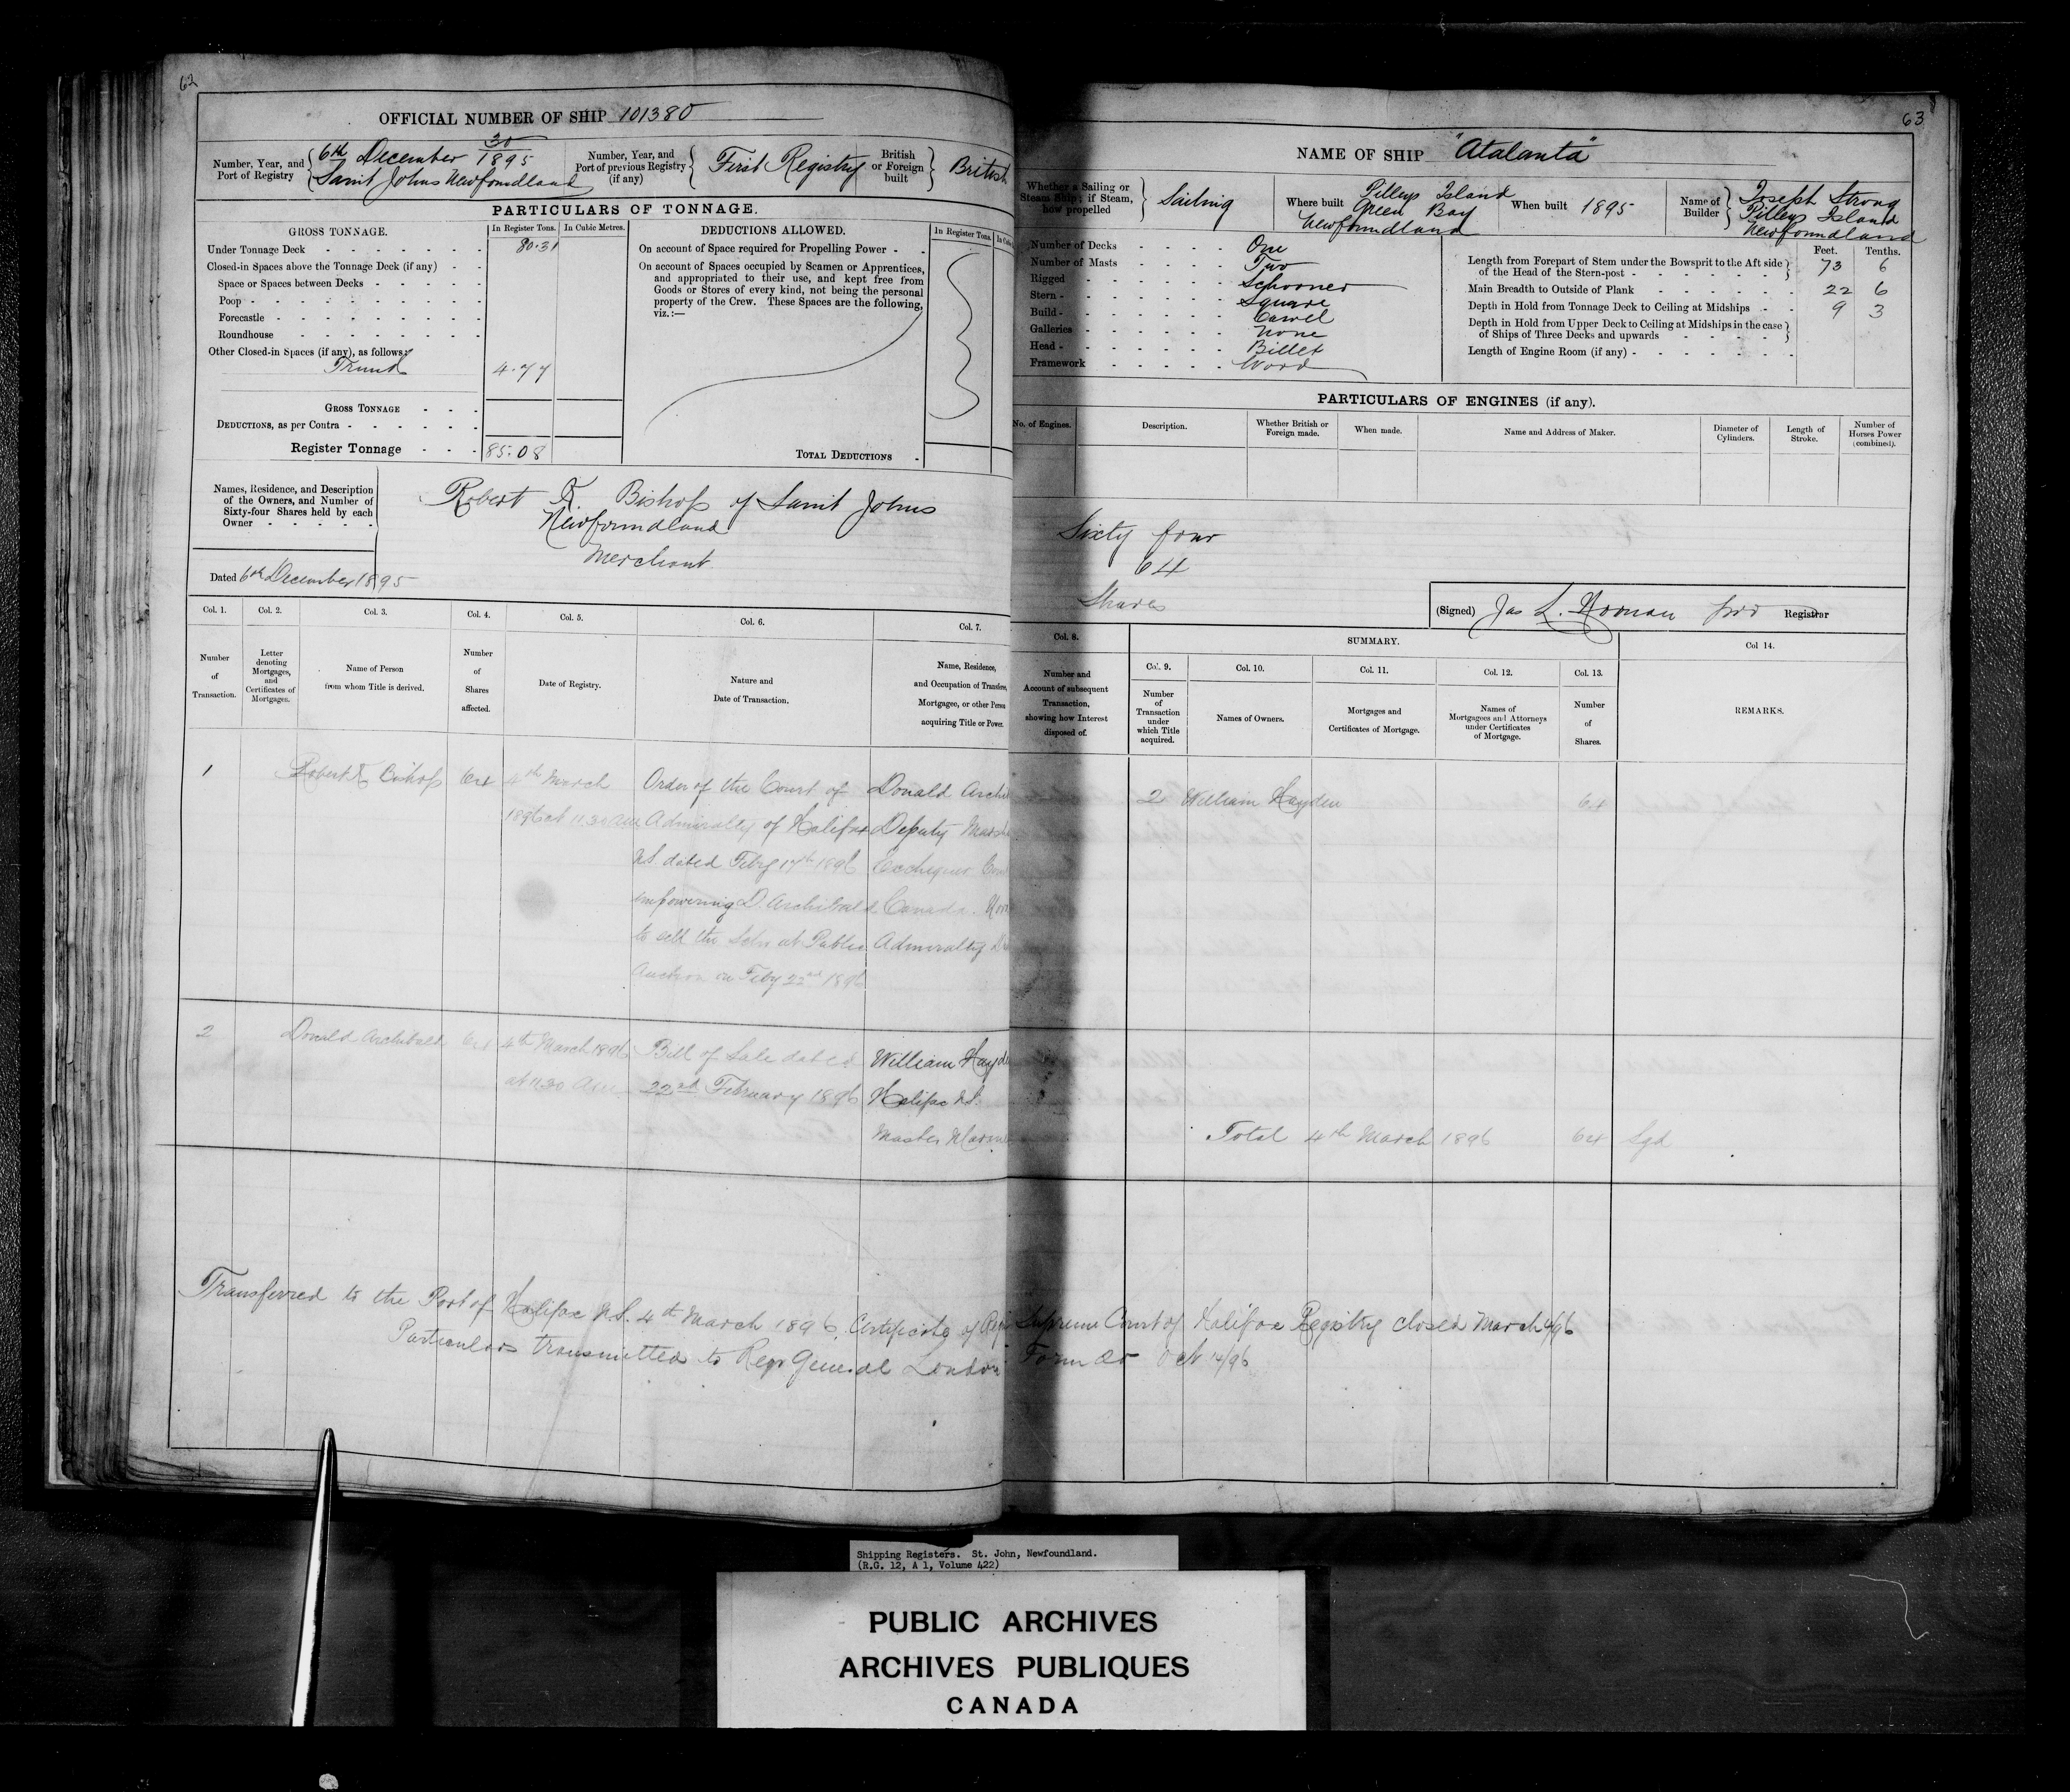 62
OFFICIAL NUMBER OF SHIP 101380
Number, Year, and Port of Registry
6th December 30/1895
Saint Johns Newfoundland
Number, Year, and Port of previous Registry (if any)
First Registry
British or Foreign built
British
PARTICULARS OF TONNAGE.
GROSS TONNAGE.
In Register Tons.
In Cubic Metres.
Under Tonnage Deck 80.31
Closed-in Spaces above the Tonnage Deck (if any)
Space or Spaces between Decks
Poop
Forecastle
Roundhouse
Other Closed-in Spaces (if any), as follows:
Trunk 4.77
GROSS TONNAGE
DEDUCTIONS, as per Contra
Register Tonnage 85.08
DEDUCTIONS ALLOWED.
In Register Tons.
On account of Space required for Propelling Power
On account of Spaces occupied by Seamen or Apprentices,
and appropriated to their use, and kept free from
Goods or Stores of every kind, not being the personal
property of the Crew. These Spaces are the following,
viz.:—
TOTAL DEDUCTIONS
Names, Residence, and Description
of the Owners, and Number of
Sixty-four Shares held by each
Owner
Robert K. Bishop of Saint Johns
Newfoundland
Merchant
Dated 6th December 1895
Col. 1.
Number of Transaction.
Col. 2.
Letter denoting Mortgages, and Certificates of Mortgages.
Col. 3.
Name of Person from whom Title is derived.
Col. 4.
Number of Shares affected.
Col. 5.
Date of Registry.
Col. 6.
Nature and Date of Transaction.
Col. 7.
Name, Residence,
and Occupation of Transferee,
Mortgagee, or other Person
acquiring Title or Power.
1
Robert K Bishop
64
4th March
1896 at 11.30 am
Order of the Court of
Admiralty of Halifax
N.S. dated Feby 17th 1896
empowering D. Archibald
to sell the Schr at Public
Auction on Feby 22nd 1896
Donald Archi
Deputy Marsh
Exchequer Cou
Canada. Nov
Admiralty D
2
Donald Archibald
64
4th March 1896
at 11.30 Am
Bill of Sale dated
22nd February 1896
William Hayde
Halifax N.S.
Master Marin
Transferred to the Port of Halifax N.S. 4th March 1896. Certificate of
Particulars transmitted to Regr General London
63
NAME OF SHIP "Atalanta"
Whether a Sailing or Steam Ship; if Steam, how propelled
Sailing
Where built
Pilleys Island
Green Bay
Newfoundland
When built 1895
Name of Builder
Joseph Strong
Pilleys Island
Newfoundland
Number of Decks One
Number of Masts Two
Rigged Schooner
Stern Square
Build Carvel
Galleries None
Head Billet
Framework Wood
Feet. Tenths.
Length from Forepart of Stem under the Bowsprit to the Aft side
of the Head of the Stern-post 73 6
Main Breadth to Outside of Plank 22 6
Depth in Hold from Tonnage Deck to Ceiling at Midships 9 3
Depth in Hold from Upper Deck to Ceiling at Midships in the case
of Ships of Three Decks and upwards
Length of Engine Room (if any)
PARTICULARS OF ENGINES (if any).
No. of Engines.
Description.
Whether British or Foreign made.
When made.
Name and Address of Maker.
Diameter of Cylinders.
Length of Stroke.
Number of Horses Power (combined).
Sixty four
64
Shares
(Signed) Jas L. Noonan pro Registrar
Col. 8.
Number and
Account of subsequent
Transaction,
showing how Interest
disposed of.
SUMMARY.
Col. 9.
Number of Transaction under which Title acquired.
Col. 10.
Names of Owners.
Col. 11.
Mortgages and Certificates of Mortgage.
Col. 12.
Names of Mortgagees and Attorneys under Certificates of Mortgage.
Col. 13.
Number of Shares.
Col 14.
REMARKS.
2 William Hayden 64
Total 4th March 1896 64 Sgd
Supreme Court of Halifax Registry closed March 4/96
Form 20 Oct 14/96
Shipping Registers. St. John, Newfoundland.
(R.G. 12, A 1, Volume 422)
PUBLIC ARCHIVES
ARCHIVES PUBLIQUES
CANADA